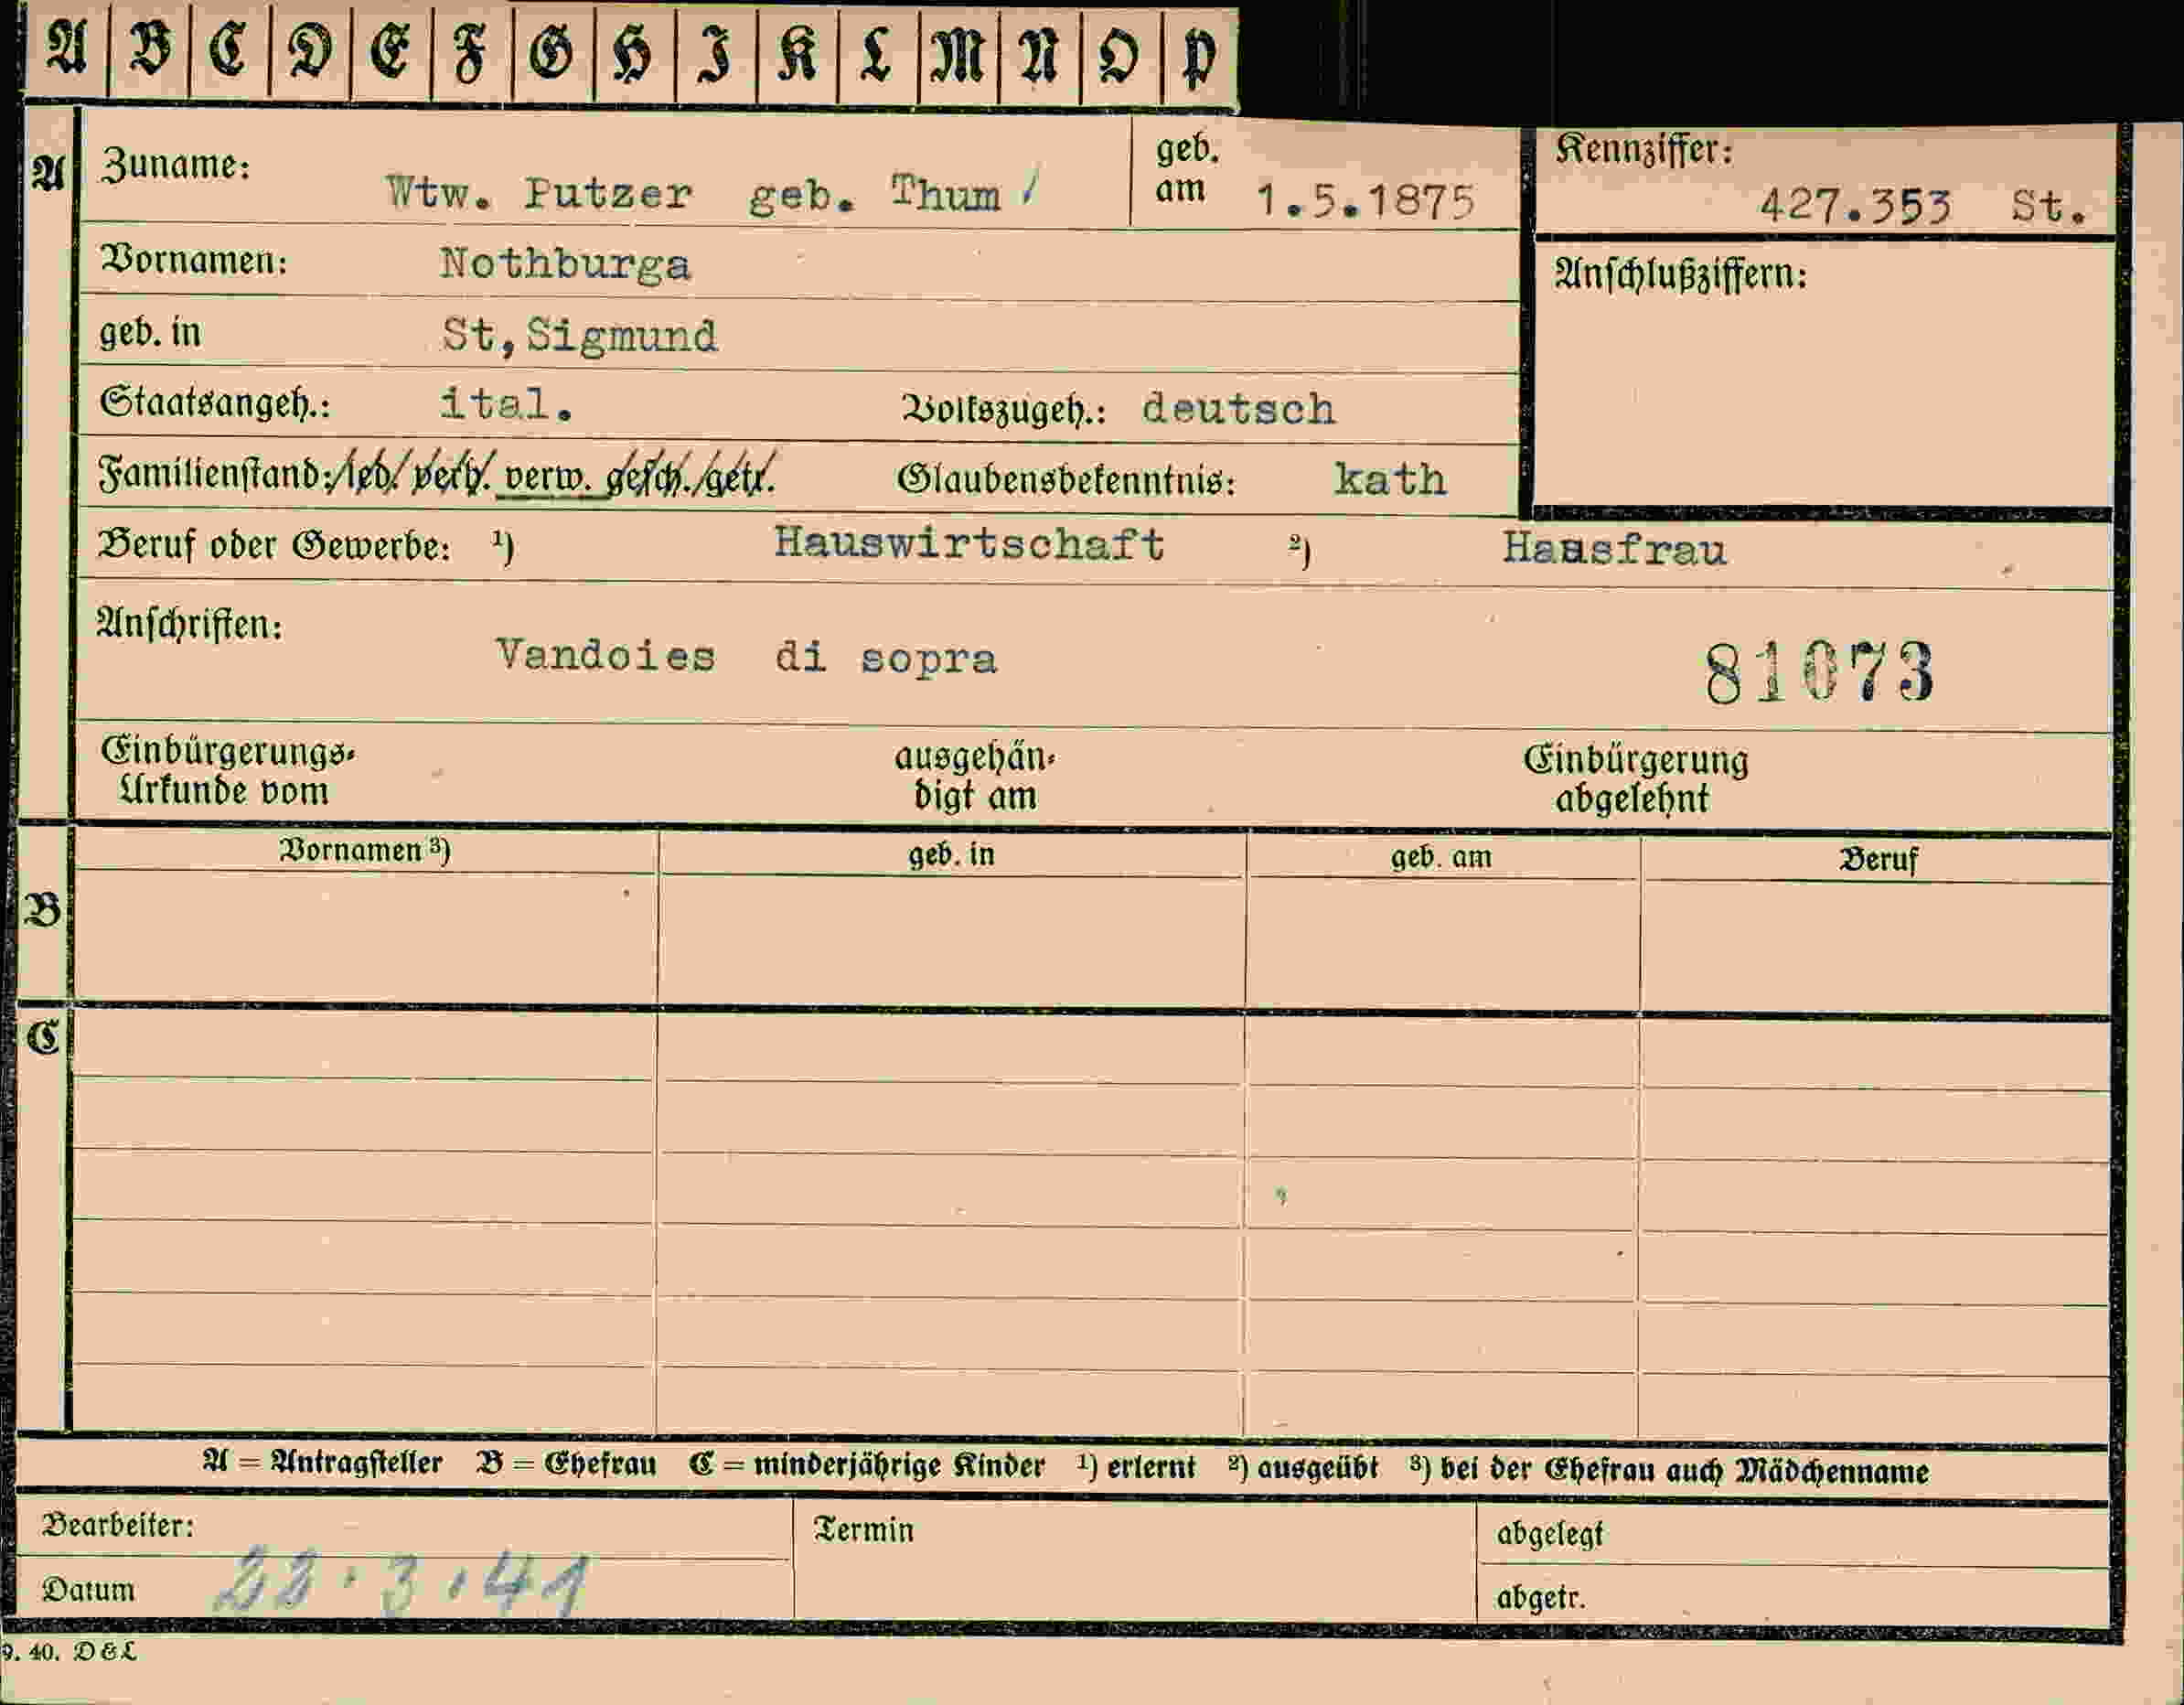 A B C D E F G H I K L M N O P
A Zuname: Wtw. Putzer geb. Thum / geb. am 1.5.1875 Kennziffer: 427.353 St.
Vornamen: Nothburga
Anschlußziffern:
geb. in St,Sigmund
Staatsangeh.: ital. Volkszugeh.: deutsch
Familienstand: led. verh. verw. gesch. getr. Glaubensbekenntnis: kath
Beruf oder Gewerbe: ¹) Hauswirtschaft ²) Haasfrau
Anschriften: Vandoies di sopra 81073
Einbürgerungs- ausgehän- Einbürgerung
Urkunde vom digt am abgelehnt
Vornamen ³) geb. in geb. am Beruf
B
C
A = Antragsteller B = Ehefrau C = minderjährige Kinder ¹) erlernt ²) ausgeübt ³) bei der Ehefrau auch Mädchenname
Bearbeiter: Termin abgelegt
Datum 22.3.41 abgetr.
9. 40. D&L